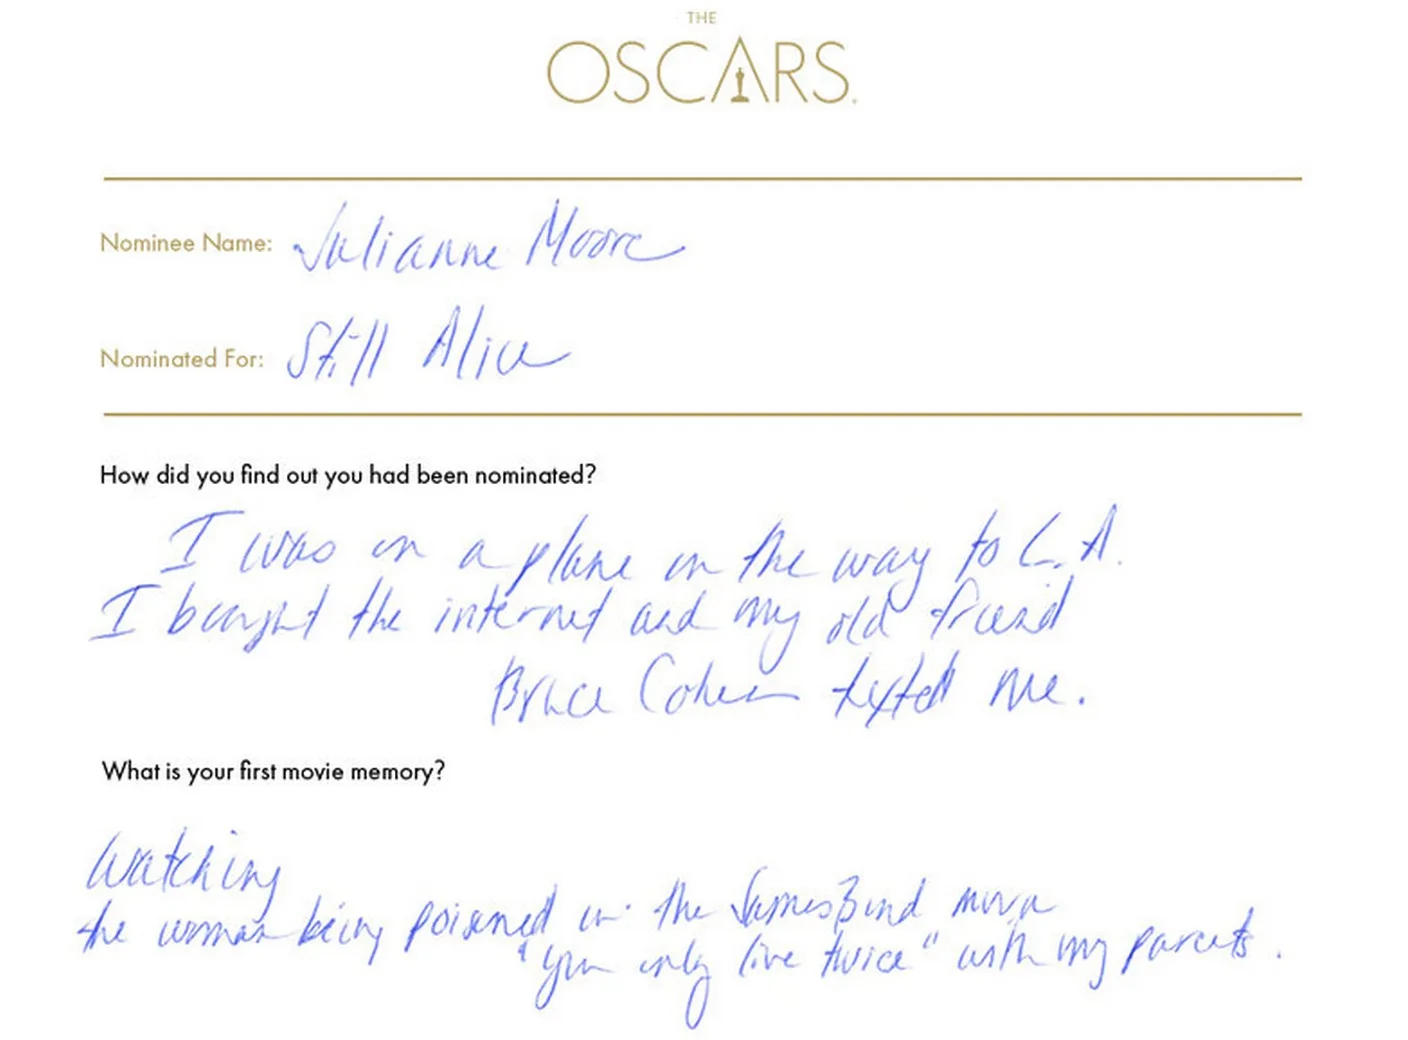 THE
OSCARS
Nominee Name: Julianne Moore
Nominated For: Still Alice
How did you find out you had been nominated?
I was on a plane on the way to L.A.
I bought the internet and my old friend
Bruce Cohen texted me.
What is your first movie memory?
Watching
the woman being poisoned in the James Bond movie
"You only live twice" with my parents.